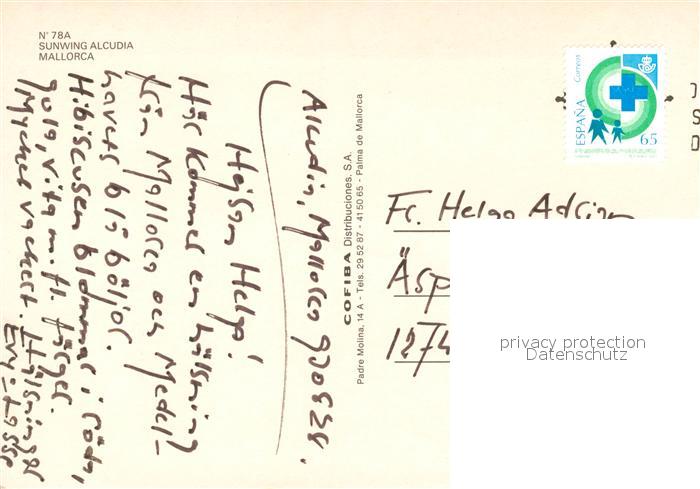 N° 78A
SUNWING ALCUDIA
MALLORCA
Alcudia, Mallorca 930828.
Hejsan Helga!
Här kommer en hälsning
från Mallorca och Medel-
havets blå böljor.
Hibiscusen blommar i röda,
gula, vita m. fl. färger.
Mycket vackert. Hälsningar
COFIBA Distribuciones, S.A.
Padre Molina, 14 A - Tels. 29 52 87 - 41 50 65 - Palma de Mallorca
Correos
ESPAÑA
65
Fr. Helga
Äsp
1274
privacy protection
Datenschutz